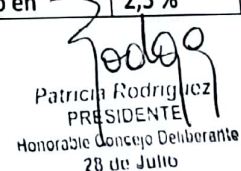 o en 2,5 %
Patricia Rodriguez
PRESIDENTE
Honorable Concejo Deliberante
28 de Julio